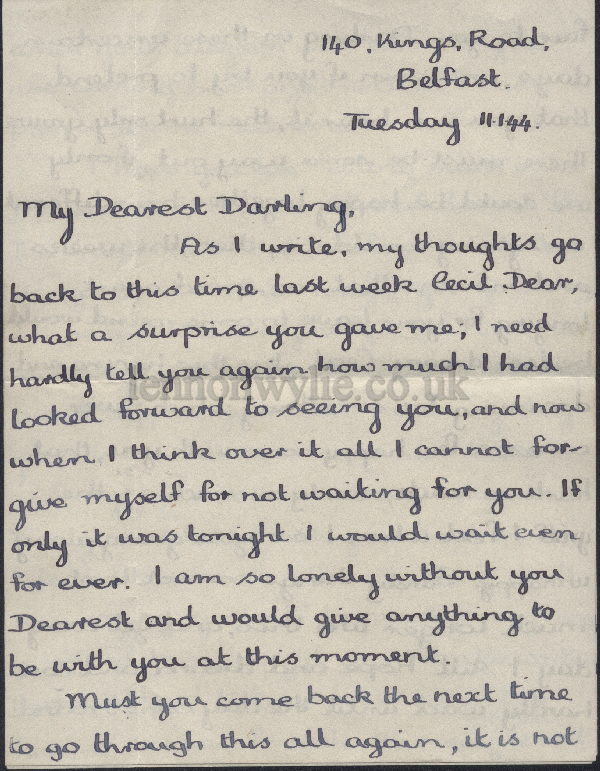 140, Kings, Road,
Belfast.
Tuesday 11.1.44.
My Dearest Darling,
As I write, my thoughts go
back to this time last week Cecil Dear,
what a surprise you gave me; I need
hardly tell you again how much I had
lennonwylie.co.uk
looked forward to seeing you, and now
when I think over it all I cannot for-
give myself for not waiting for you. If
only it was tonight I would wait even
for ever. I am so lonely without you
Dearest and would give anything to
be with you at this moment.
Must you come back the next time
to go through this all again, it is not